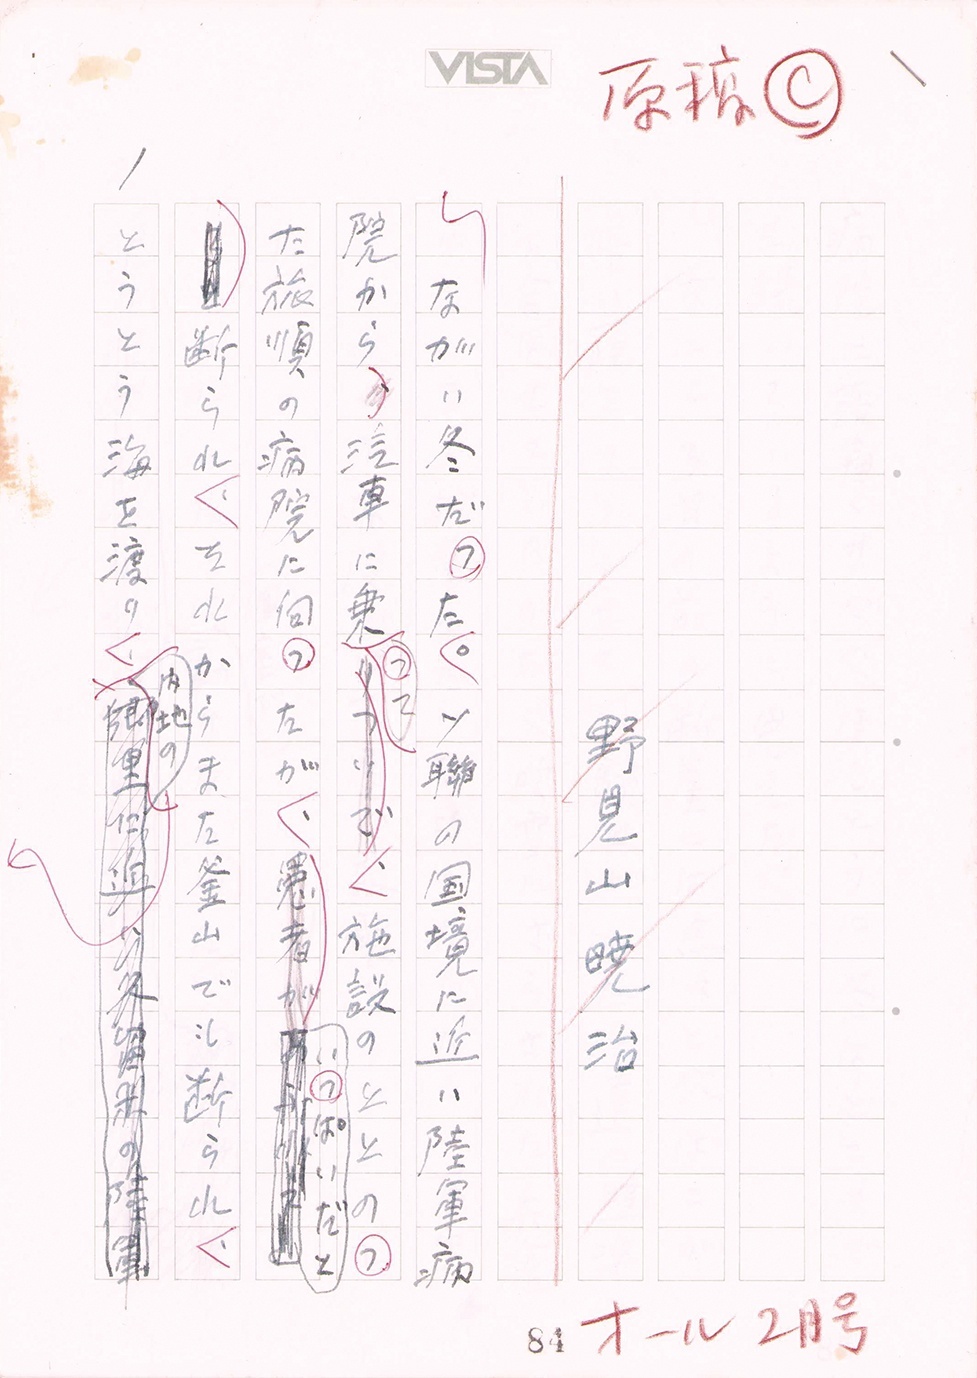 VISTA
原稿Ⓒ
野見山暁治
ながい冬だった。ソ聯の国境に近い陸軍病
院から、汽車に乗りついで、施設のととのっ
って
た旅順の病院に向ったが、患者が
いっぱいだと
断られ、それからまた釜山でも断られ、
とうとう海を渡り、郷里に近い久留米の陸軍
内地の
84
オール2月号